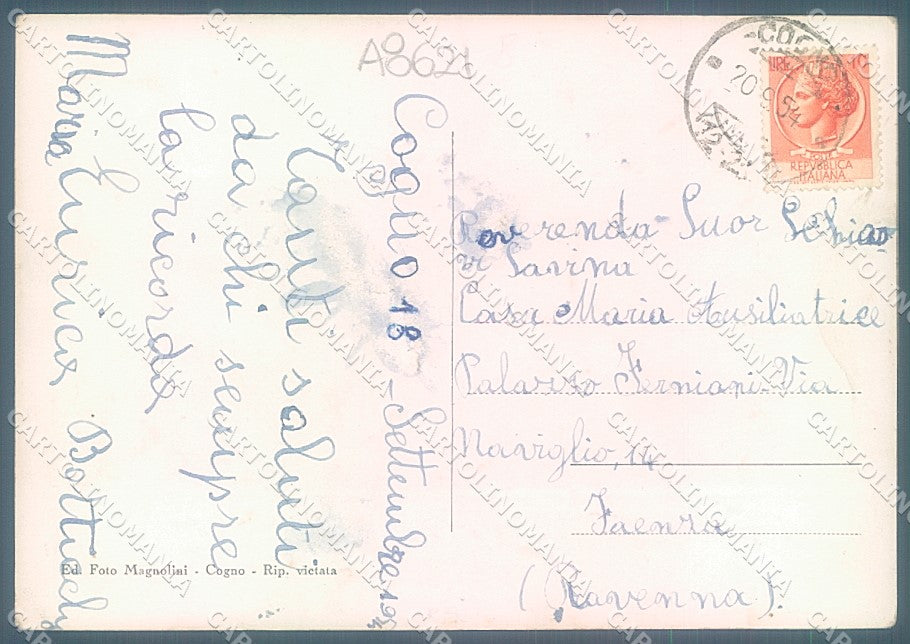 A8621
Cogno 18 Settembre 19
Tanti saluti
da chi sempre
la ricorda
Maria Enrica
LIRE 10
POSTE
REPVBBLICA
ITALIANA
20 9 54
Reverenda Suor
Savina
Casa Maria Ausiliatrice
Palazzo Ferniani Via
Naviglio, 14
Faenza
(Ravenna).
Ed. Foto Magnolini - Cogno - Rip. vietata
CARTOLINOMANIA